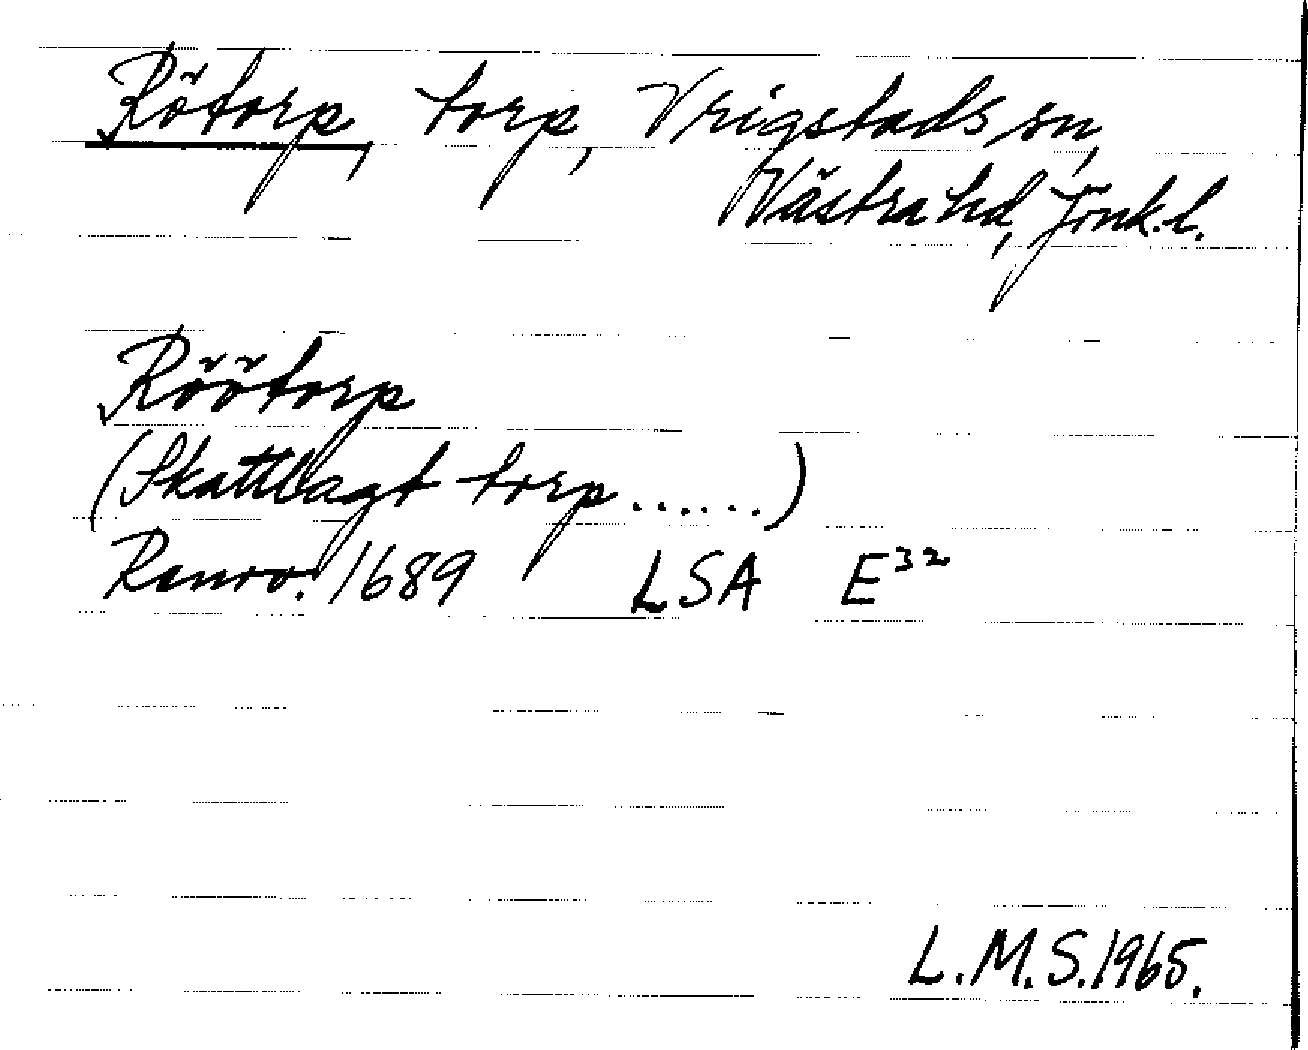 Rötorp, torp, Vrigstads sn,
Västra hd, Jönk.l.
Röötorp
(Skattlagt torp ......)
Ranov. 1689 LSA E32
L.M.S. 1965.